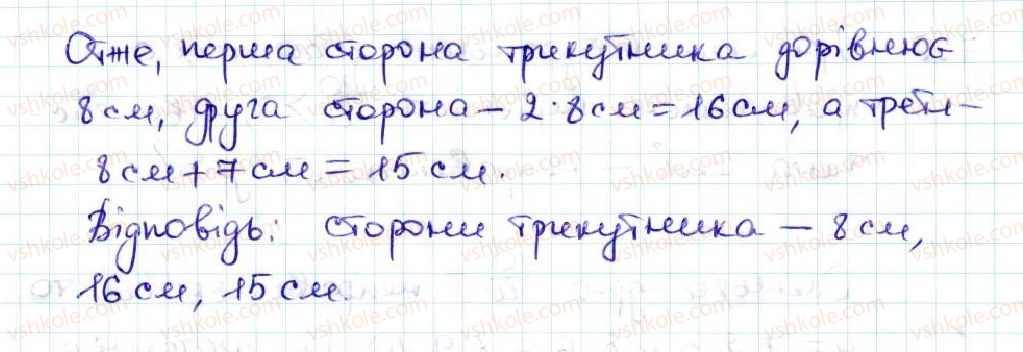 Отже, перша сторона трикутника дорівнює
8 см, друга сторона – 2·8 см = 16 см, а третя –
8 см + 7 см = 15 см.
Відповідь: сторони трикутника – 8 см,
16 см, 15 см.